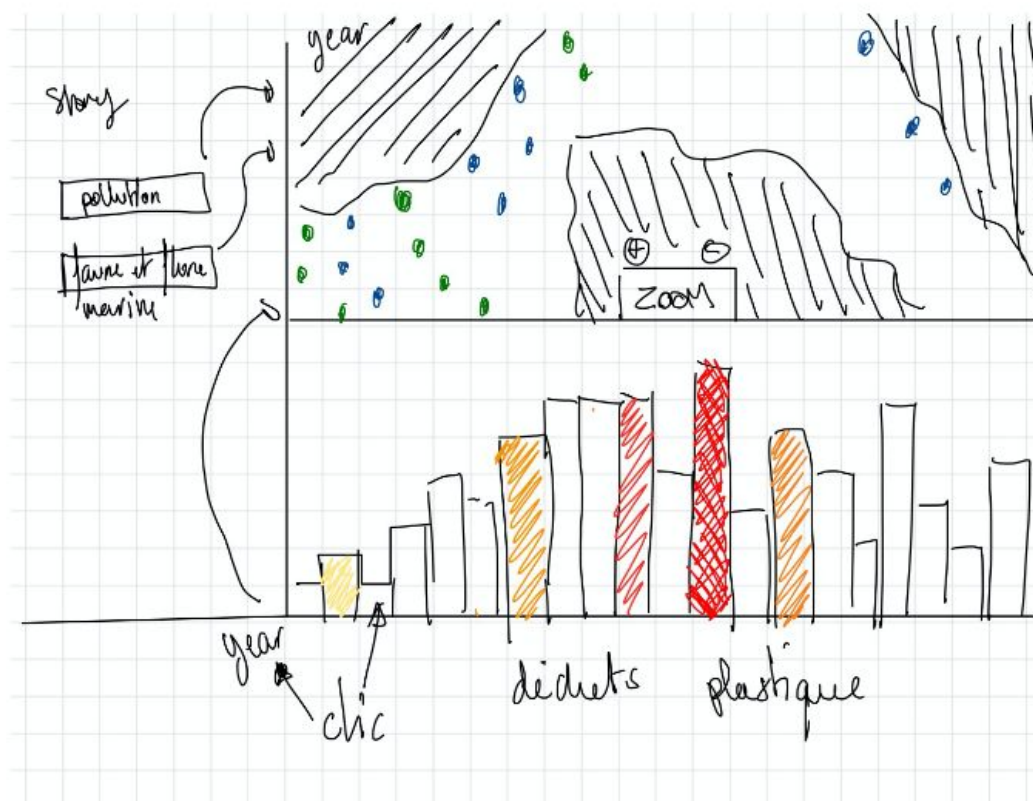 year
story
pollution
faune et flore
marine
+ -
ZOOM
year
clic
déchets plastique